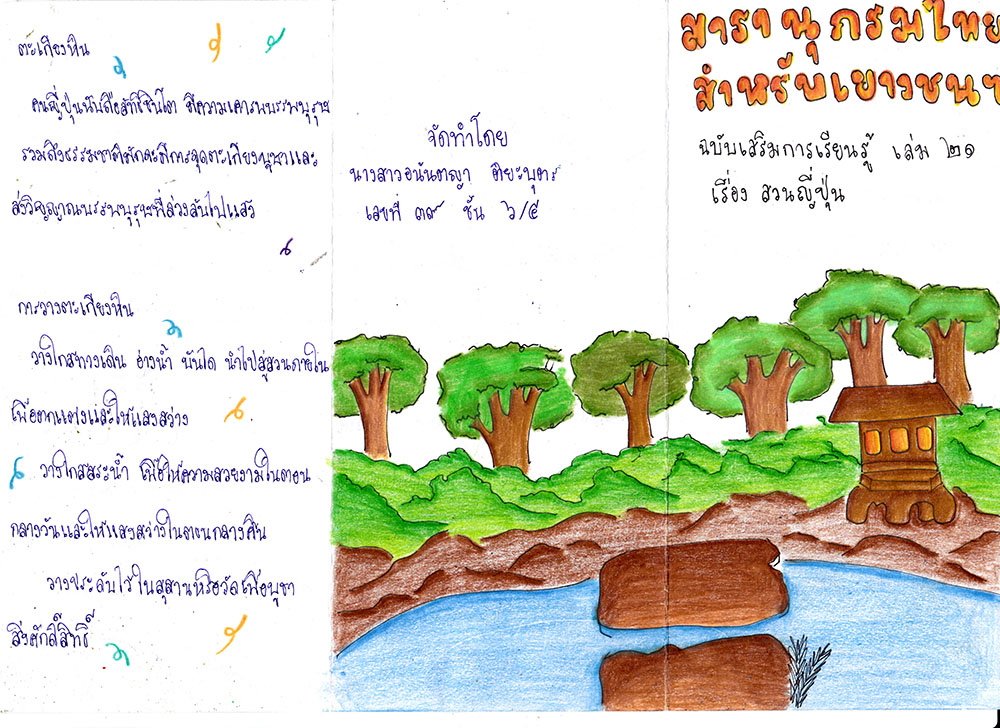 ตะเกียงหิน
คนญี่ปุ่นนับถือลัทธิชินโต มีความเคารพบรรพบุรุษ
รวมถึงธรรมชาติมักจะมีการจุดตะเกียงบูชาและ
ส่งวิญญาณบรรพบุรุษที่ล่วงลับไปแล้ว
การวางตะเกียงหิน
วางใกล้ทางเดิน อ่างน้ำ บันได นำไปสู่สวนภายใน
เพื่อตกแต่งและให้แสงสว่าง
วางใกล้สระน้ำ เพื่อให้ความสวยงามในตอน
กลางวันและให้แสงสว่างในตอนกลางคืน
วางประดับไว้ในสุสานหรือวัดเพื่อบูชา
สิ่งศักดิ์สิทธิ์
จัดทำโดย
นางสาวอนันตญา ติยะบุตร
เลขที่ ๓๙ ชั้น ๖/๕
สารานุกรมไทย
สำหรับเยาวชนฯ
ฉบับเสริมการเรียนรู้ เล่ม ๒๑
เรื่อง สวนญี่ปุ่น